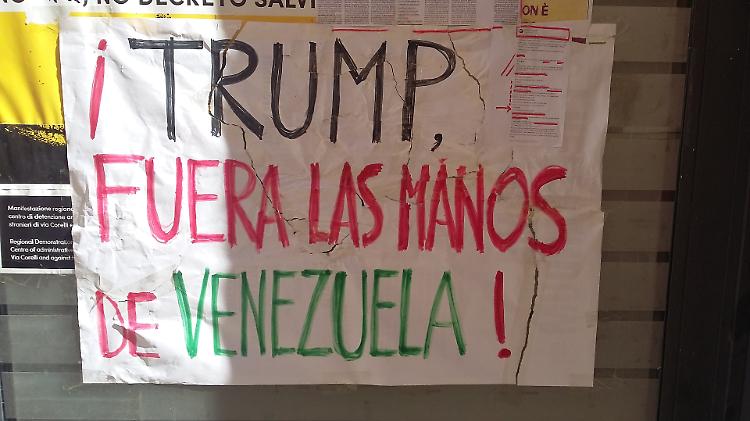 NO DECRETO SALVI
ON È
¡TRUMP,
FUERA LAS MANOS
DE VENEZUELA!
Manifestazione regiona
centro di detenzione am
stranieri di via Corelli
Regional Demonstration
Centre of administrativ
Via Corelli and against